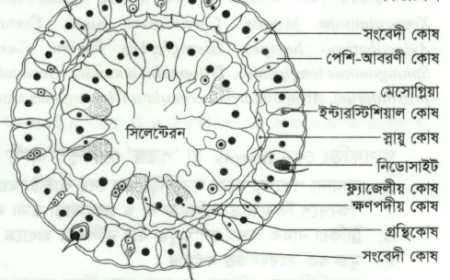 সংবেদী কোষ
পেশি-আবরণী কোষ
মেসোগ্লিয়া
ইন্টারস্টিশিয়াল কোষ
সিলেন্টেরন
স্নায়ু কোষ
নিডোসাইট
ফ্ল্যাজেলীয় কোষ
ক্ষণপদীয় কোষ
গ্রন্থিকোষ
সংবেদী কোষ